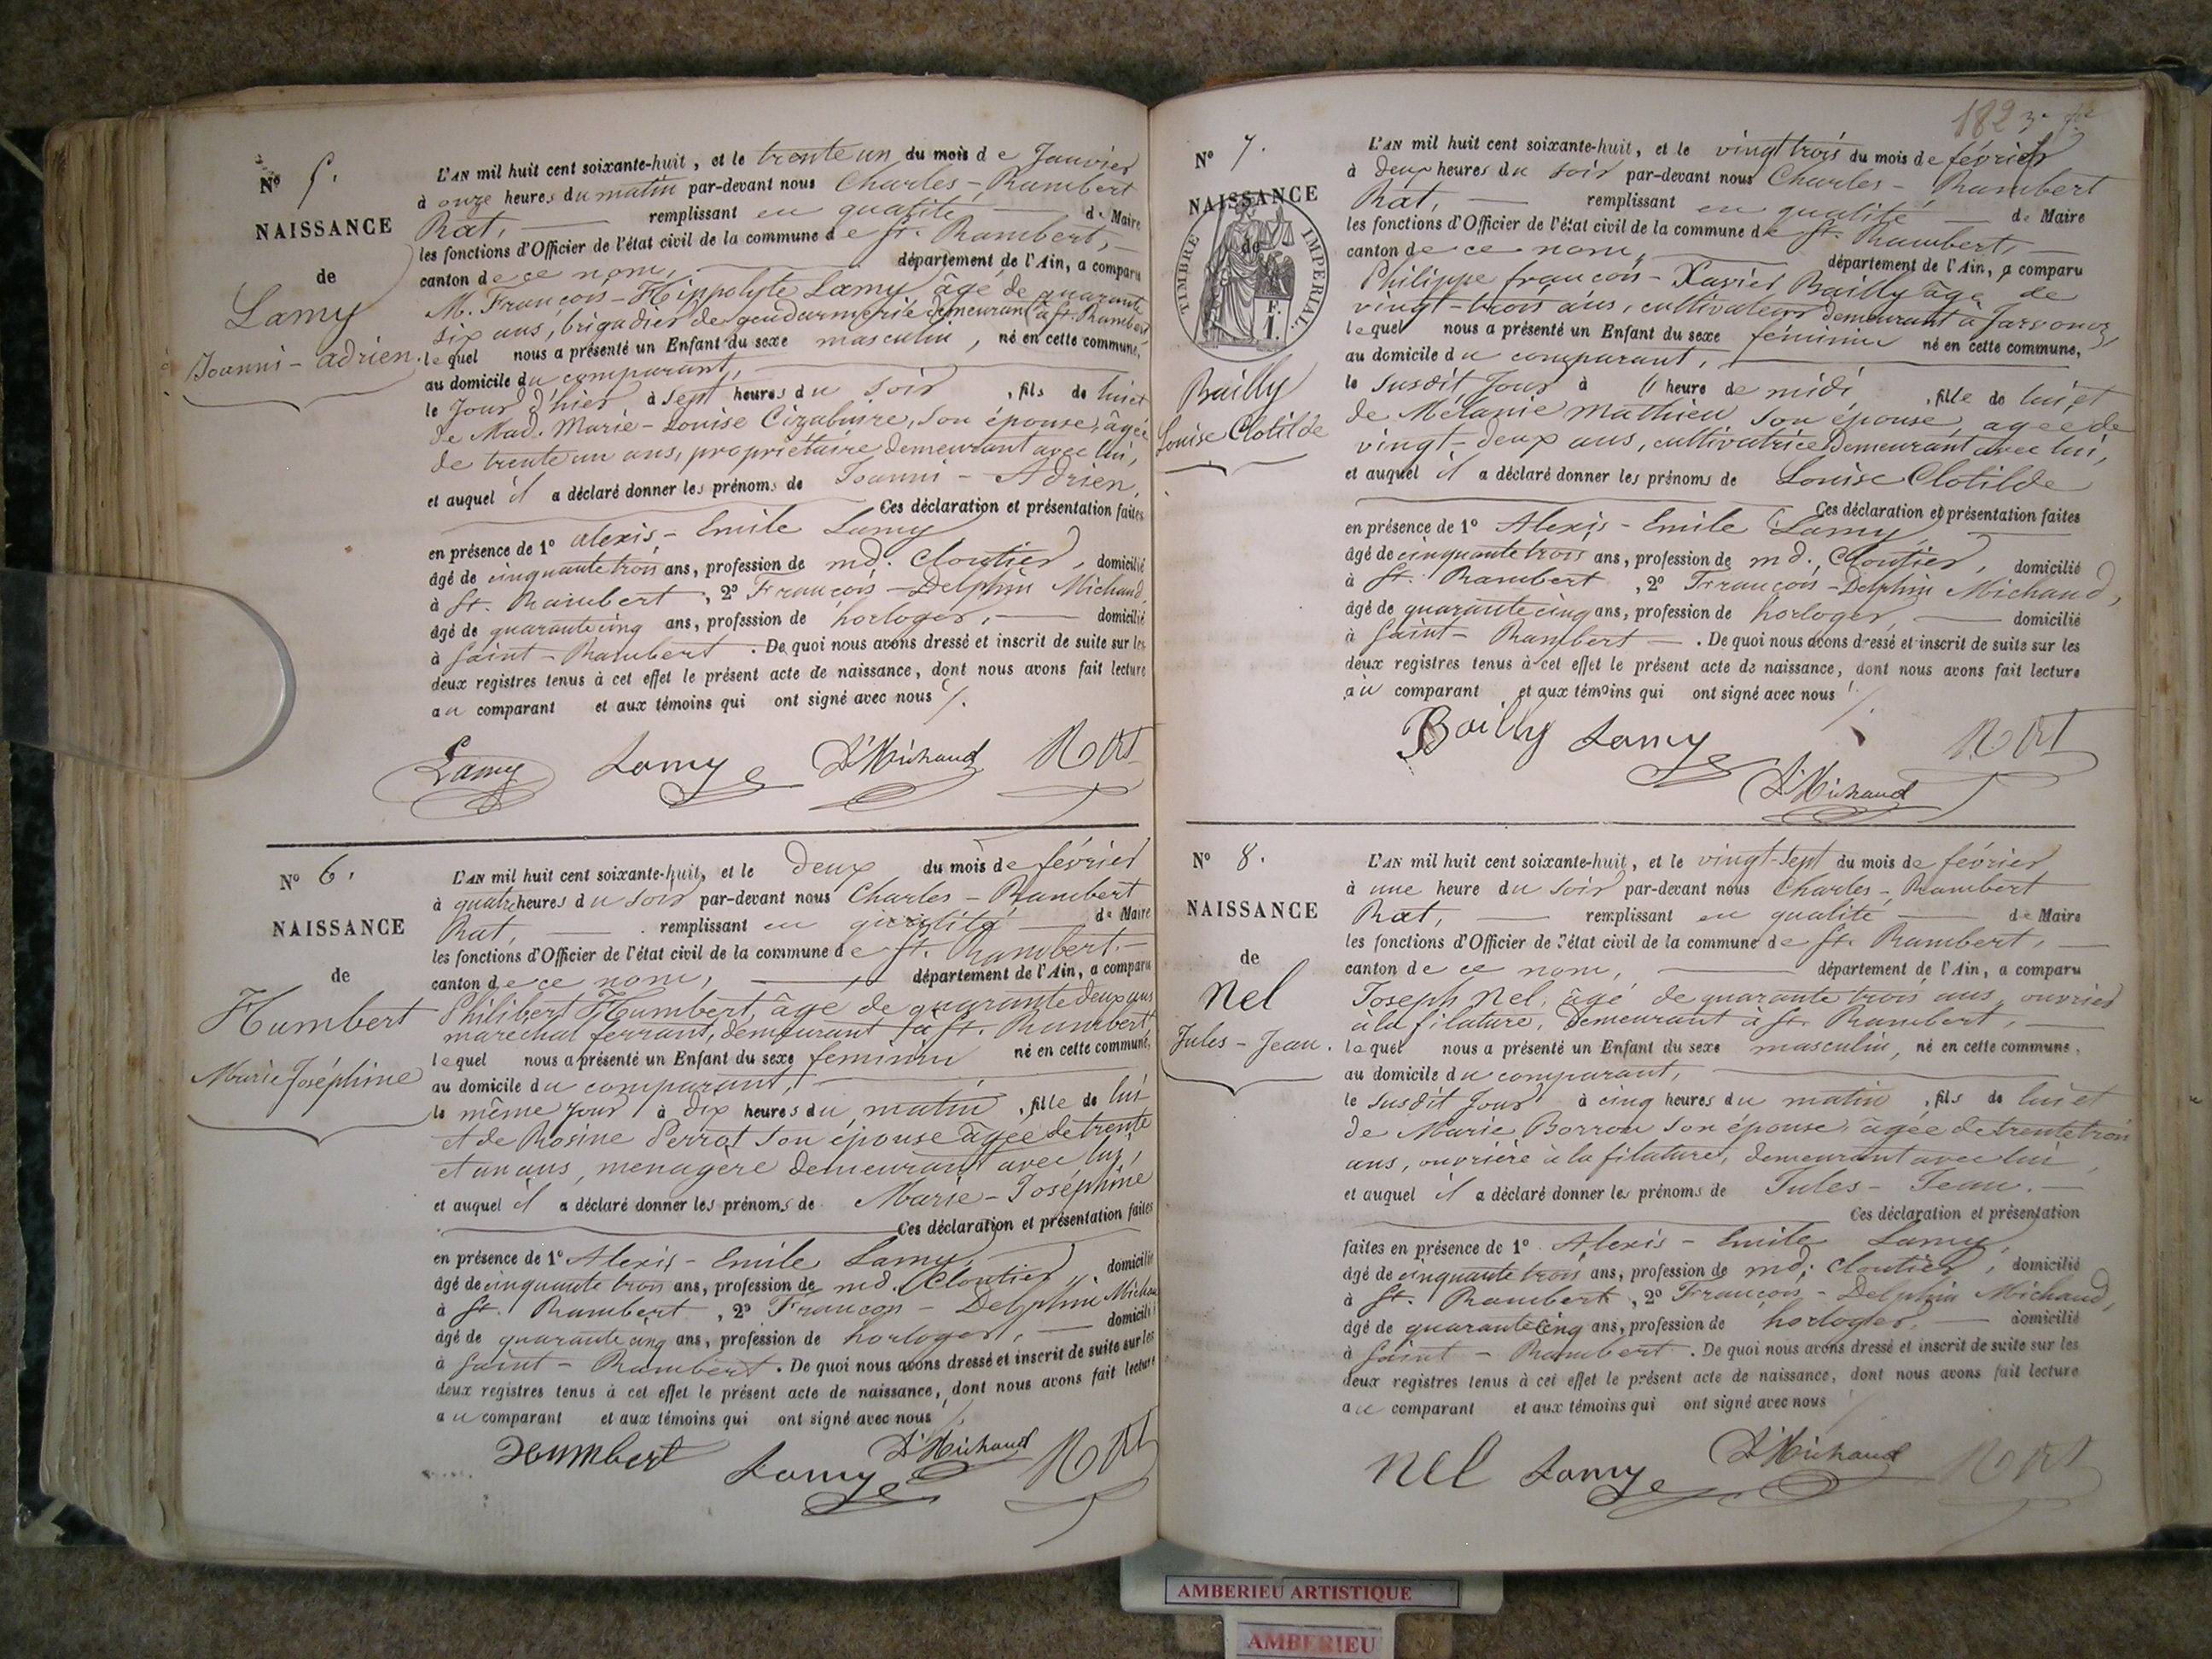 Nº 5.
NAISSANCE
de
Lamy
Joanni-adrien.
L'AN mil huit cent soixante-huit, et le trente un du mois de Janvier
à onze heures du matin par-devant nous Charles-Rambert
Rat, remplissant en qualité de Maire
les fonctions d'Officier de l'état civil de la commune de St. Rambert,
canton de ce nom, département de l'Ain, a comparu
M. François-Hippolyte Lamy âgé de quarante
six ans, brigadier de gendarmerie demeurant à St. Rambert
lequel nous a présenté un Enfant du sexe masculin, né en cette commune,
au domicile du comparant,
le Jour d'hier à sept heures du soir, fils de lui et
de Mad. Marie-Louise Cizabuire, son épouse, âgée
de trente un ans, propriétaire demeurant avec lui,
et auquel il a déclaré donner les prénoms de Joanni-Adrien.
Ces déclaration et présentation faites
en présence de 1º alexis-Emile Lamy
âgé de cinquante trois ans, profession de md. Cloutier, domicilié
à St. Rambert, 2º François-Delphin Michaud
âgé de quarante cinq ans, profession de horloger, domicilié
à Saint-Rambert. De quoi nous avons dressé et inscrit de suite sur les
deux registres tenus à cet effet le présent acte de naissance, dont nous avons fait lecture
au comparant et aux témoins qui ont signé avec nous /.
Lamy Lamy Dl Michaud Rat
Nº 6.
NAISSANCE
de
Humbert
Marie Joséphine
L'AN mil huit cent soixante-huit, et le Deux du mois de février
à quatre heures du soir par-devant nous Charles-Rambert
Rat, remplissant en qualité de Maire
les fonctions d'Officier de l'état civil de la commune de St. Rambert,
canton de ce nom, département de l'Ain, a comparu
Philibert Humbert, âgé de quarante deux ans
maréchal ferrant, demeurant à St. Rambert,
lequel nous a présenté un Enfant du sexe feminin né en cette commune,
au domicile du comparant,
le même jour à dix heures du matin, fille de lui
et de Rosine Perrat son épouse âgée de trente
et un ans, menagère demeurant avec lui,
et auquel il a déclaré donner les prénoms de Marie-Joséphine
Ces déclaration et présentation faites
en présence de 1º Alexis-Emile Lamy,
âgé de cinquante trois ans, profession de md. Cloutier, domicilié
à St. Rambert, 2º François-Delphin Michau
âgé de quarante cinq ans, profession de horloger, domicilié
à Saint-Rambert. De quoi nous avons dressé et inscrit de suite sur les
deux registres tenus à cet effet le présent acte de naissance, dont nous avons fait lecture
au comparant et aux témoins qui ont signé avec nous /.
Humbert Lamy Dl Michaud Rat
182
Nº 7.
NAISSANCE
de
TIMBRE IMPERIAL.
Bailly
Louise Clotilde
L'AN mil huit cent soixante-huit, et le vingt trois du mois de février
à deux heures du soir par-devant nous Charles-Rambert
Rat, remplissant en qualité de Maire
les fonctions d'Officier de l'état civil de la commune de St. Rambert,
canton de ce nom, département de l'Ain, a comparu
Philippe françois-Xavier Bailly âgé de
vingt-trois ans, cultivateur demeurant à Javornoz,
lequel nous a présenté un Enfant du sexe féminin né en cette commune,
au domicile du comparant,
le susdit Jour à heure de midi, fille de lui et
de Mélanie Mathieu son épouse, agée de
vingt-deux ans, cultivatrice demeurant avec lui,
et auquel il a déclaré donner les prénoms de Louise Clotilde
Ces déclaration et présentation faites
en présence de 1º Alexis-Emile Lamy,
âgé de cinquante trois ans, profession de md. Cloutier, domicilié
à St. Rambert, 2º François-Delphin Michaud,
âgé de quarante cinq ans, profession de horloger, domicilié
à Saint-Rambert. De quoi nous avons dressé et inscrit de suite sur les
deux registres tenus à cet effet le présent acte de naissance, dont nous avons fait lecture
au comparant et aux témoins qui ont signé avec nous /.
Bailly Lamy Rat
Dl Michaud
Nº 8.
NAISSANCE
de
Nel
Jules-Jean.
L'AN mil huit cent soixante-huit, et le vingt-sept du mois de février
à une heure du soir par-devant nous Charles-Rambert
Rat, remplissant en qualité de Maire
les fonctions d'Officier de l'état civil de la commune de St. Rambert,
canton de ce nom, département de l'Ain, a comparu
Joseph Nel, âgé de quarante trois ans, ouvrier
à la filature, demeurant à St. Rambert,
lequel nous a présenté un Enfant du sexe masculin, né en cette commune,
au domicile du comparant,
le susdit Jour à cinq heures du matin, fils de lui et
de Marie Borron son épouse, âgée de trente trois
ans, ouvrière à la filature, demeurant avec lui,
et auquel il a déclaré donner les prénoms de Jules-Jean.
Ces déclaration et présentation
faites en présence de 1º Alexis-Emile Lamy,
âgé de cinquante trois ans, profession de md. Cloutier, domicilié
à St. Rambert, 2º François-Delphin Michaud,
âgé de quarante cinq ans, profession de horloger, domicilié
à Saint-Rambert. De quoi nous avons dressé et inscrit de suite sur les
deux registres tenus à cet effet le présent acte de naissance, dont nous avons fait lecture
au comparant et aux témoins qui ont signé avec nous
Nel Lamy Dl Michaud Rat
AMBERIEU ARTISTIQUE
AMBERIEU